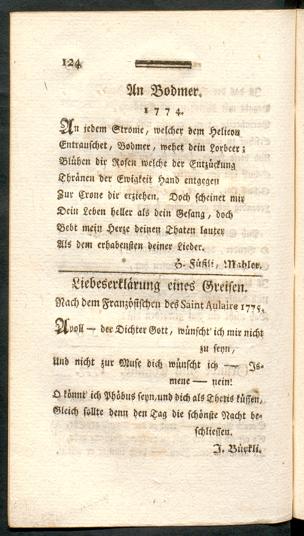 124
An Bodmer.
1774.
An jedem Strome, welcher dem Helicon
Entrauschet, Bodmer, wehet dein Lorbeer;
Blühen dir Rosen welche der Entzückung
Thränen der Ewigkeit Hand entgegen
Zur Crone dir erziehen. Doch scheinet mir
Dein Leben heller als dein Gesang, doch
Bebt mein Herze deinen Thaten lauter
Als dem erhabensten deiner Lieder.
H. Füßli, Mahler.
Liebeserklärung eines Greisen.
Nach dem Französischen des Saint Aulaire 1775.
Apoll — der Dichter Gott, wünscht' ich mir nicht
zu seyn,
Und nicht zur Muse dich wünscht ich — Is-
mene — nein!
O könnt' ich Phöbus seyn, und dich als Thetis küssen,
Gleich sollte denn den Tag die schönste Nacht be-
schliessen.
J. Bürkli.